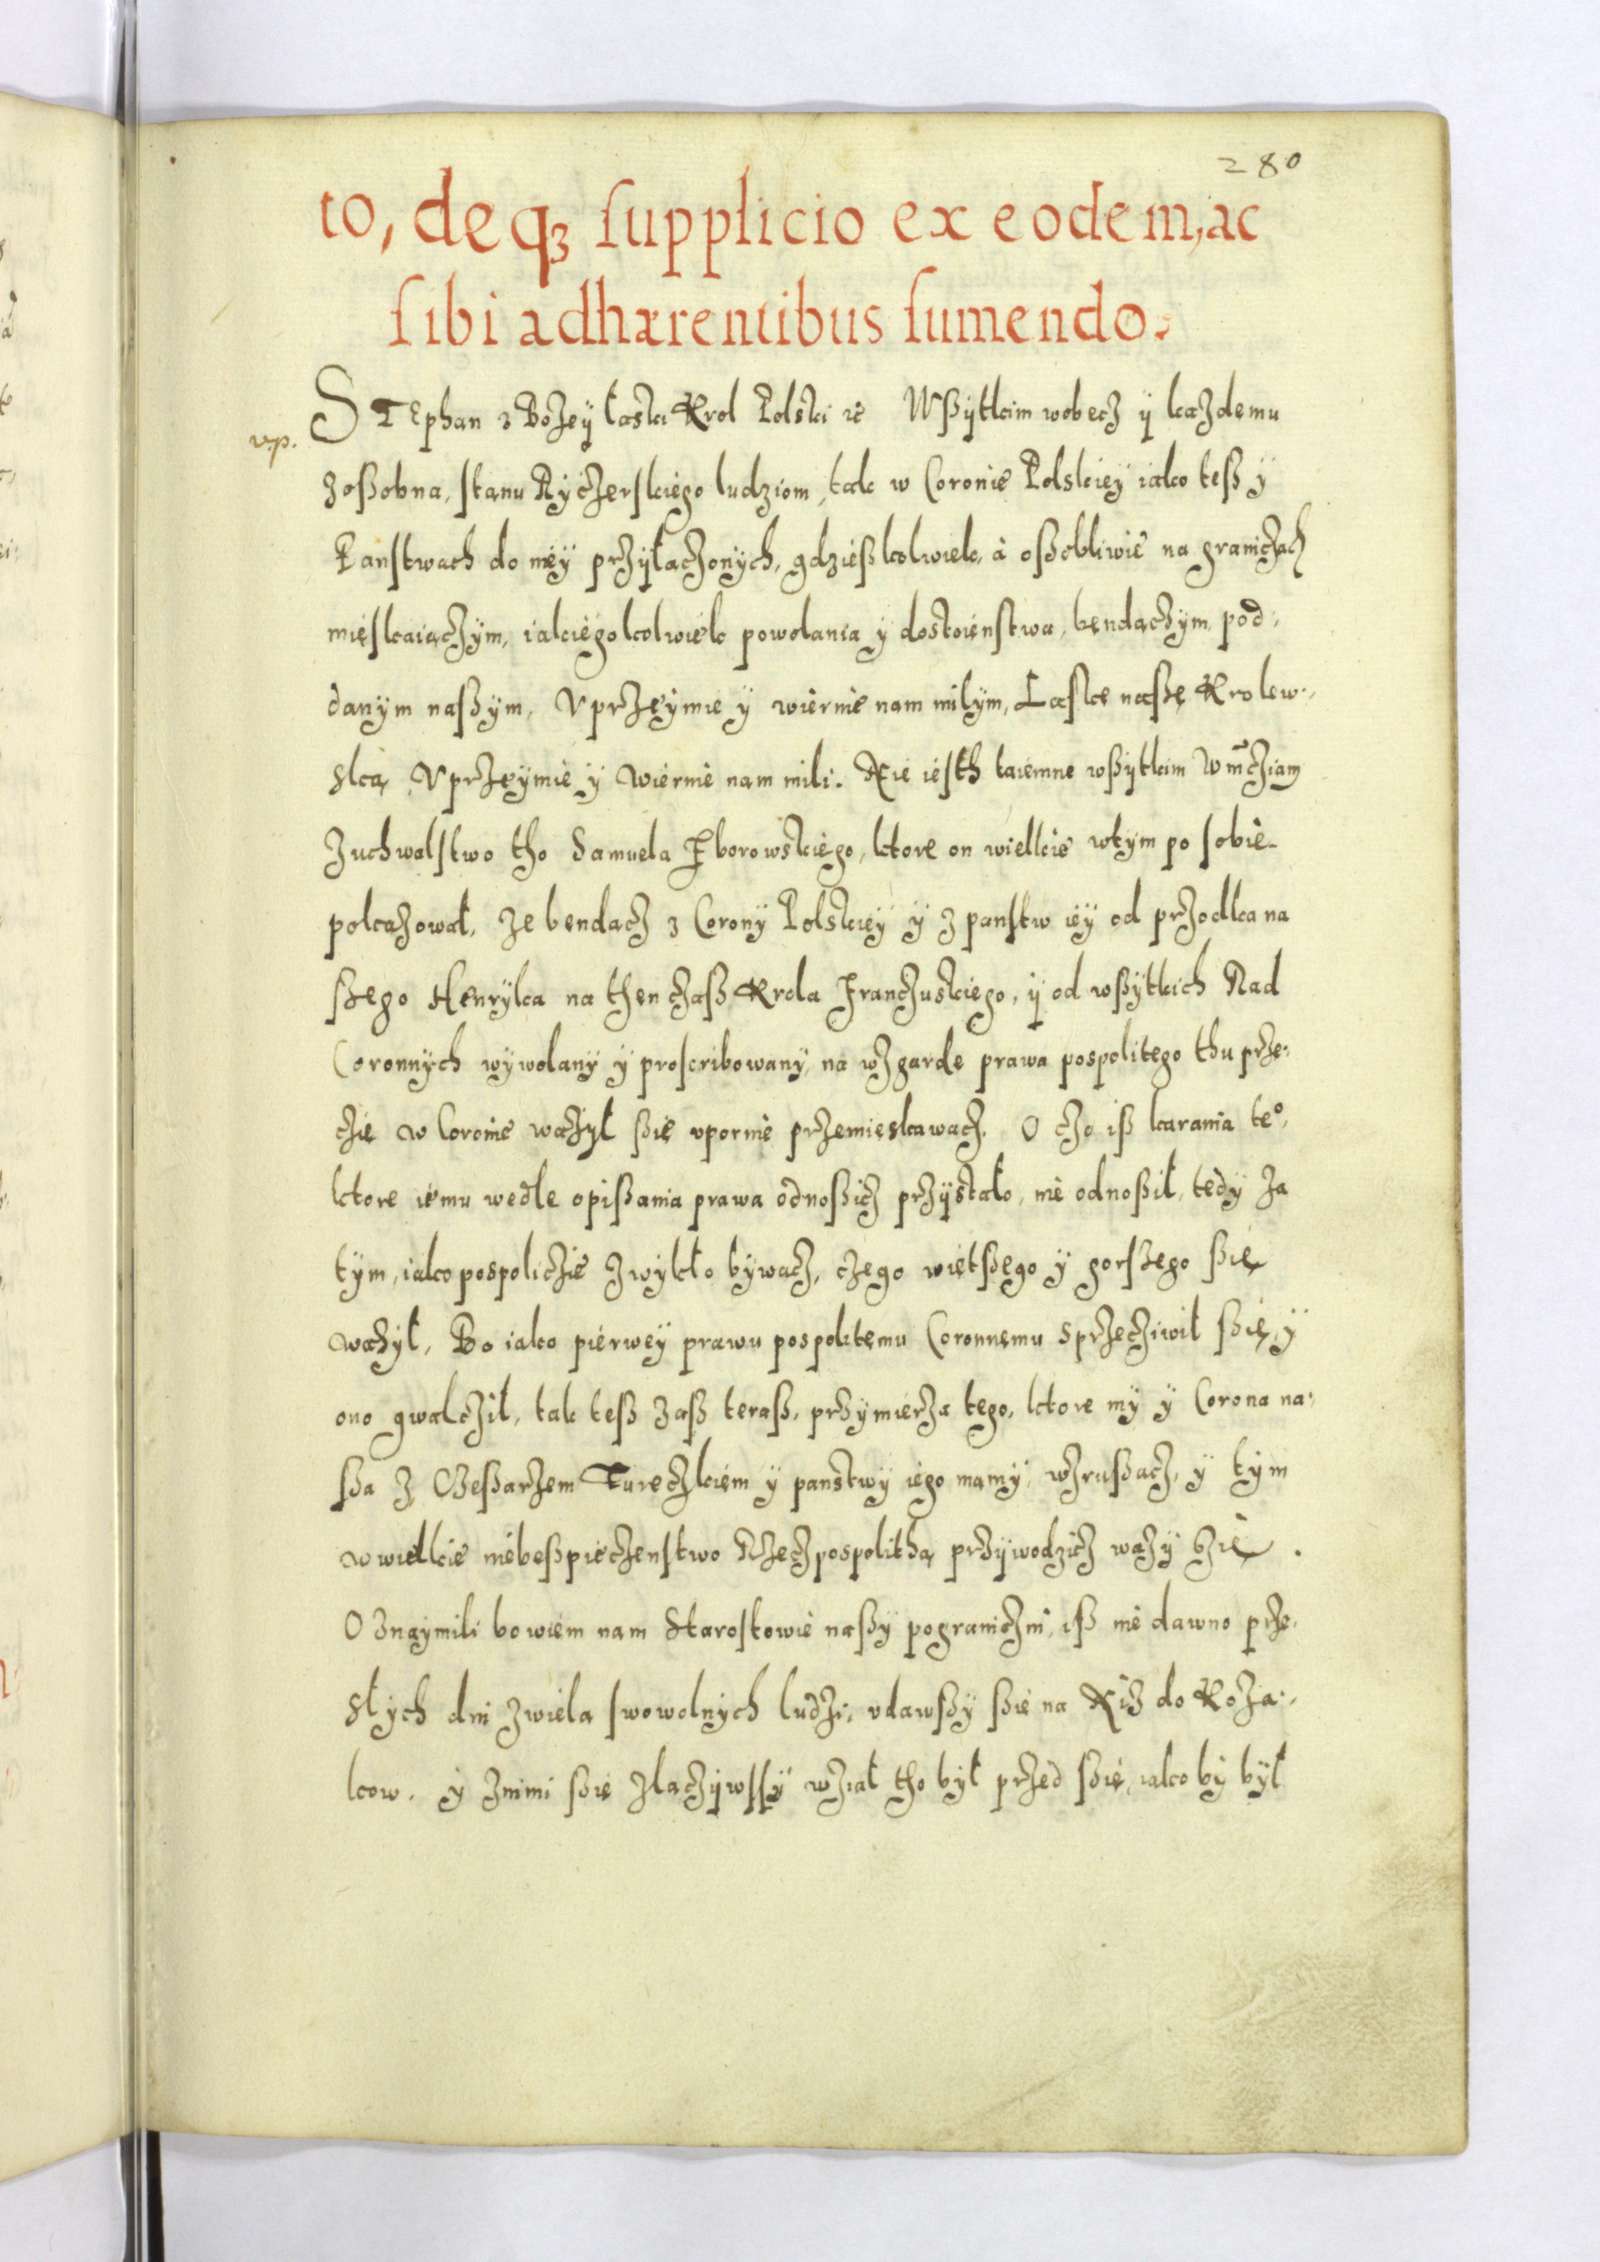 280
to, deqꝫ supplicio ex eodem, ac
sibi adhærentibus sumendo.
v.p.
STEphan z Bożey łaski Krol Polski ꝛc̄ Wßytkim wobecz ÿ każdemu
zoßobna, stanu Ryczerskiego ludziom, tak w Coronie Polskiey iako teß y
Panstwach do niey przyłaczonych, gdzießkolwiek, à oßobliwie na graniczach
mieskaiączym, iakiegokolwiek powolania y dostoienstwa, bendączym pod-
danym naßym, Vprzeymie y wiernie nam milym, Łaskę naßę Krolew-
ską, Vprzeymie y wiernie nam mili. Nie iesth taiemne wßytkim Wm̃cziam
zuchwalstwo tho Samuela Zborowskiego, ktore on wielkie wtym po sobie
pokazował, że bendacz z Corony Polskiey y z panstw iey od przodka na
szego Henryka na then czaß Krola Franczuskiego, y od wßytkich Rad
Coronnych wywolany y proscribowany, na wzgardę prawa pospolitego thu prze-
czie w Coronie ważył ßie vpornie przemieskawacz. O czo iß karania te°,
ktore iemu wedle opißania prawa odnoßicz przystało, nie odnoßil, tedy za
tym, iako pospoliczie zwykło bywacz, czego wietßego y gorszego ßię
ważył, Bo iako pierwey prawu pospolitemu Coronnemu sprzecziwił ßię, y
ono gwalczil, tak teß zaß teraß, przymierza tego, ktore my y Corona na-
ßa z Ceßarzem Tureczkiem y panstwy iego mamy, wzrußacz, y tym
w wielkie niebeßpieczenstwo Rzeczpospolithą przywodzicz waży ßię.
Oznaymili bowiem nam Starostowie naßy pograniczni, iß nie dawno prze-
słych dni zwielą swowolnych ludzi, vdawßy ßie na Niz do Koza-
kow, y znimi ßie zlaczywssy wział tho był przed ßie, iakoby był